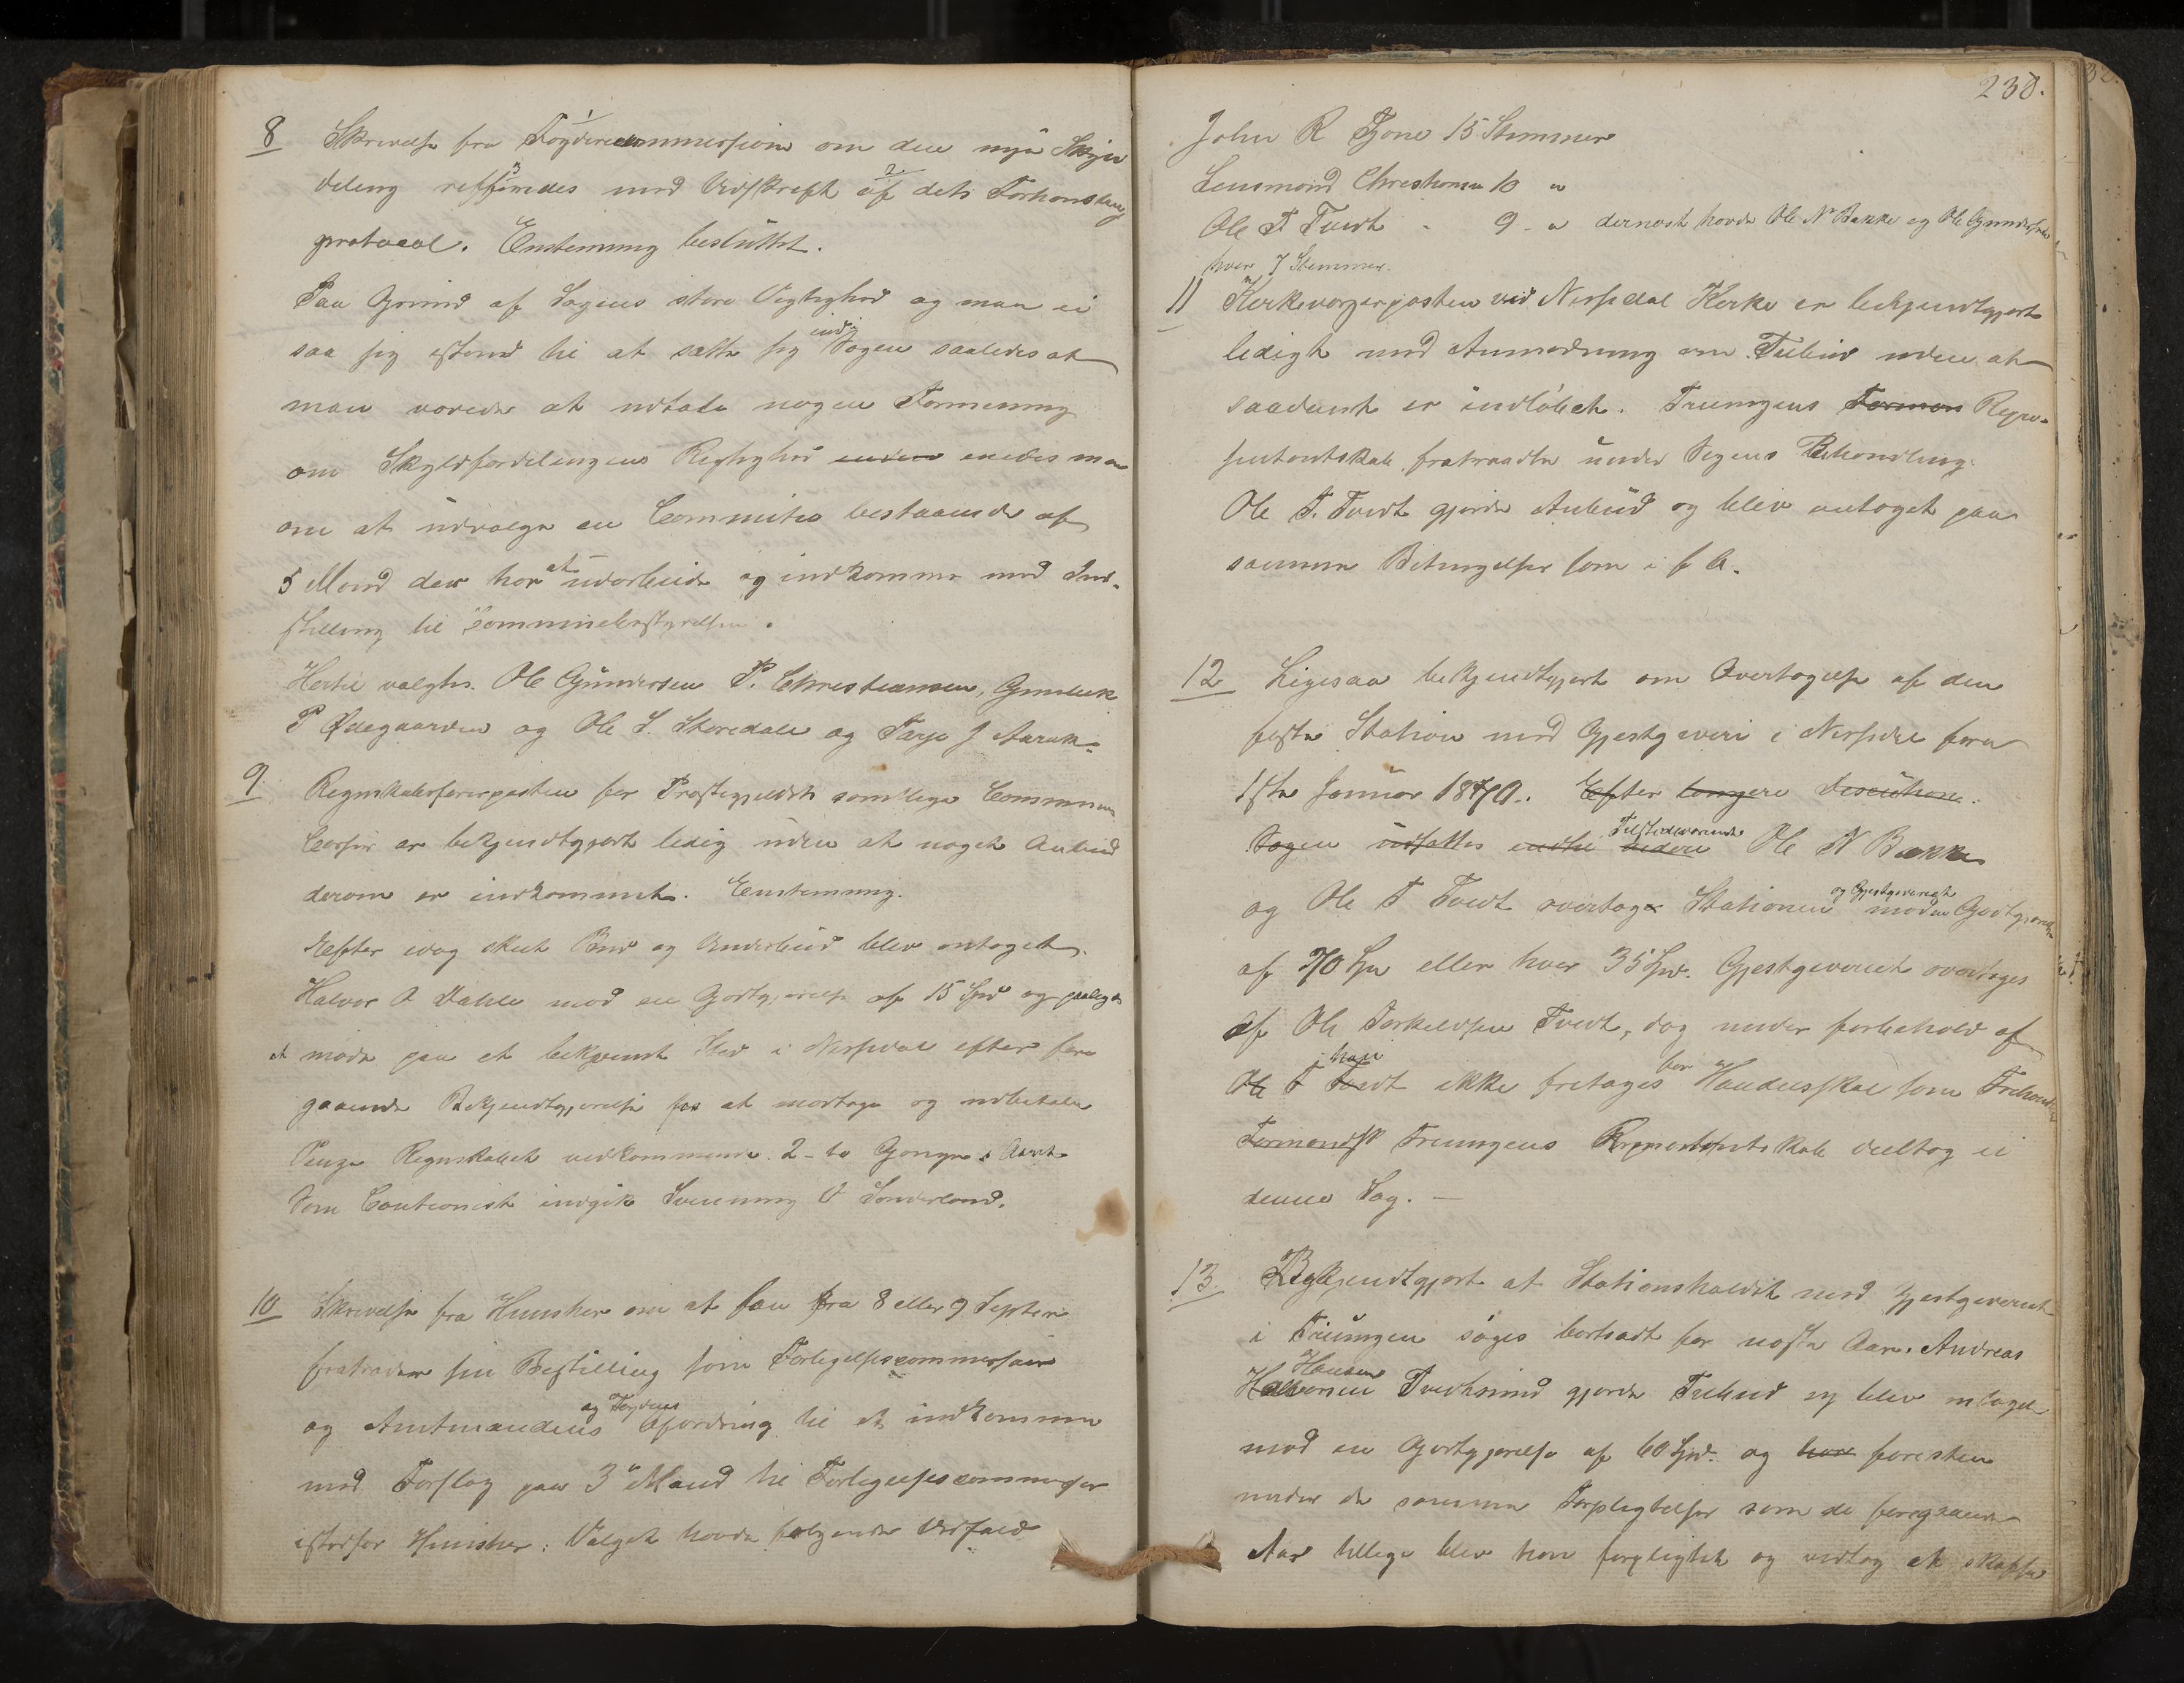 8 Skrivelse fra Fogdericommission om den nye Skyld
deling refferedes med Udskrift af dets Forhandlings
protocol. Enstemmig besluttet.
Paa Grund af Sagens store Vigtighed og man ei
saa sig istand til at sætte sig ind i Sagen saaledes at
man vovede at udtale nogen Formening
om Skyldfordelingens Rigtighed enedes man
om at udvælge en Committe bestaaende af
5 Mand der har at udarbeide og indkomme med Ind-
stilling til Communebestyrelsen.
Hertil valgtes. Ole Gundersen P. Christiansen, Gunleik
P Ødegaarden og Ole S. Storedale og Tarje J Aarak.
9. Regnskabsførerposten for Prestegjeldets samtlige Commune
Casser er bekjendtgjort ledig uden at noget Anbud
derom er indkommet. Enstemmig.
Efter idag skeet Bud og Underbud blev antaget
Halvor O Dahle mod en Godtgjørelse af 15 Spd og paalegges
at møde paa et bekvemt Sted i Nissedal efter fore
gaaende Bekjendtgjørelse for at modtage og udbetale
Penge Regnskabet vedkommende 2-to Gange i Aaret
Som Cautionist indgik Svenning O Sonderland.
10 Skrivelse fra Hunsher om at faa fra 8 eller 9 Septem
fratræde sin Bestilling som Forligelsescommissair
og Amtmandens og Fogdens Opfordring til at indkomme
med Forslag paa 3 Mand til Forligelsescommissair
istedfor Hunsher. Valget havde følgende Udfald
230.
John R Tjone 15 Stemmer
Lensmand Christiansen 10 "
Ole T Tveit - 9 - " dernæst havde Ole N Bakke og Ole Gundersen
hver 7 Stemmer.
11 Kirkeværgerposten ved Nissedal Kirke er bekjendtgjort
ledigt med Anmodning om Tilbud uden at
saadant er indløbet. Treungens Forman Repre-
sentantskab fratraadte under Sagens Behandling.
Ole T. Tveit gjorde Anbud og blev antaget paa
samme Betingelser som i f A.
12 Ligesaa bekjendtgjort om Overtagelse af den
faste Station med Gjestgiveri i Nissedal fra
1ste Januar 1870. Efter længere Discution.
Sagen udsattes indtil videre Tilstedeværende Ole N Bakke
og Ole T Tveit overtage Stationen og Gjestgiveriet mod en Godtgjørelse
af 70 Spd eller hver 35 Spd. Gjestgiveriet overtages
af Ole Torkeldsen Tveit, dog under forbehold af
Ole T Tveit han ikke fretages for Handelsskat som Fremdeles
Formandsk Treungens Representantskab deeltog ei
denne Sag. —
13. Bekjendtgjort at Stationsholdet med Gjestgiveriet
i Treungen søges bortsadt for neste Aar. Andreas
Halvorsen Hansen Tveitsund gjorde Tilbud og blev antaget
mod en Godtgjørelse af 60 Spd. og har foresten
under de samme Forpligtelser som de foregaaende
Aar tillige blev han forpligtet og vedtog at skaffe